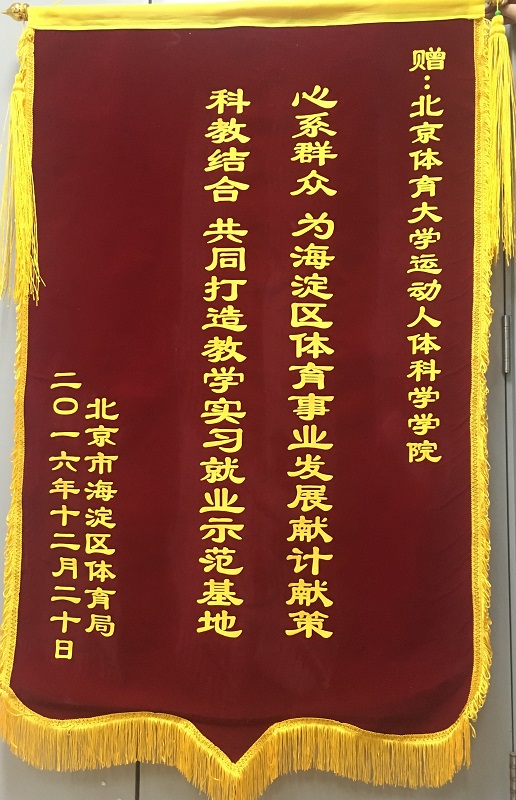 赠：北京体育大学运动人体科学学院
心系群众 为海淀区体育事业发展献计献策
科教结合 共同打造教学实习就业示范基地
北京市海淀区体育局
二〇一六年十二月二十日